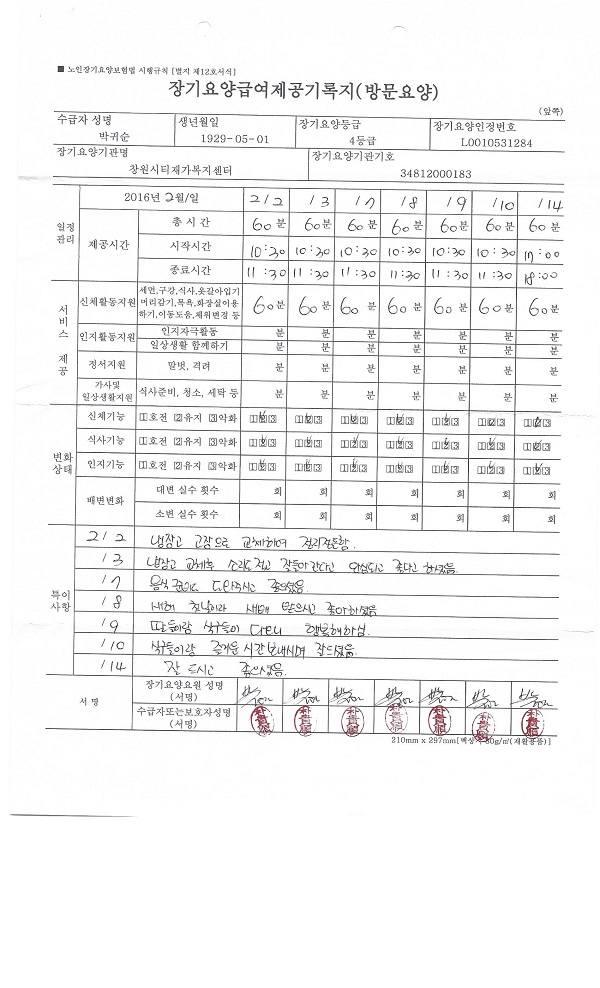 ■ 노인장기요양보험법 시행규칙 [별지 제12호서식]
장기요양급여제공기록지(방문요양)
(앞쪽)
수급자 성명 생년월일 장기요양등급 장기요양인정번호
박귀순 1929-05-01 4등급 L0010531284
장기요양기관명 장기요양기관기호
창원시티재가복지센터 34812000183
일정관리 2016년 2월/일 2/2 /3 /7 /8 /9 /10 /14
제공시간 총 시 간 60분 60분 60분 60분 60분 60분 60분
시작시간 10:30 10:30 10:30 10:30 10:30 10:30 17:00
종료시간 11:30 11:30 11:30 11:30 11:30 11:30 18:00
서비스 제공 신체활동지원 세면,구강,식사,옷갈아입기 머리감기,목욕,화장실이용하기,이동도움,체위변경 등 60분 60분 60분 60분 60분 60분 60분
인지활동지원 인지자극활동 분 분 분 분 분 분 분
일상생활 함께하기 분 분 분 분 분 분 분
정서지원 말벗, 격려 분 분 분 분 분 분 분
가사및 일상생활지원 식사준비, 청소, 세탁 등 분 분 분 분 분 분 분
변화상태 신체기능 1호전 2유지 3악화 123 123 123 123 123 123 123
식사기능 1호전 2유지 3악화 123 123 123 123 123 123 123
인지기능 1호전 2유지 3악화 123 123 123 123 123 123 123
배변변화 대변 실수 횟수 회 회 회 회 회 회 회
소변 실수 횟수 회 회 회 회 회 회 회
특이사항 2/2 냉장고 고장으로 교체하여 정리정돈함.
/3 냉장고 교체후 소리도 적고 잘돌아간다고 안심되고 좋다고 하셨음.
/7 음식
/8 새해 첫날이라 세배 받으시고 좋아하셨음
/9 딸들이랑 식구들이 행복해하심.
/10 식구들이랑 즐거운 시간 보내시며 잘드셨음.
/14 잘 드시고
서 명 장기요양요원 성명 (서명)
수급자또는보호자성명 (서명)
210mm x 297mm[백상지 80g/㎡(재활용품)]